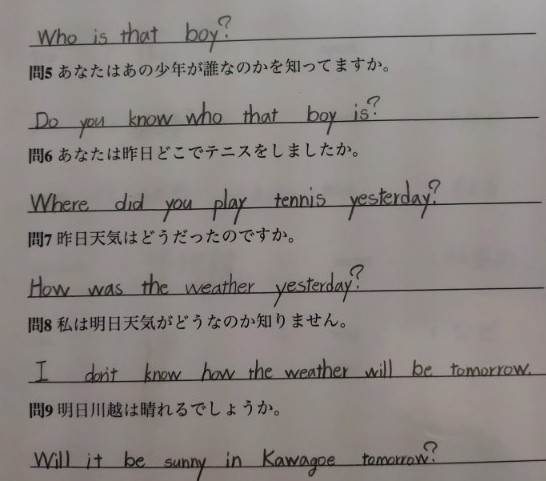 Who is that boy?
問5 あなたはあの少年が誰なのかを知ってますか。
Do you know who that boy is?
問6 あなたは昨日どこでテニスをしましたか。
Where did you play tennis yesterday?
問7 昨日天気はどうだったのですか。
How was the weather yesterday?
問8 私は明日天気がどうなのか知りません。
I don't know how the weather will be tomorrow.
問9 明日川越は晴れるでしょうか。
Will it be sunny in Kawagoe tomorrow?